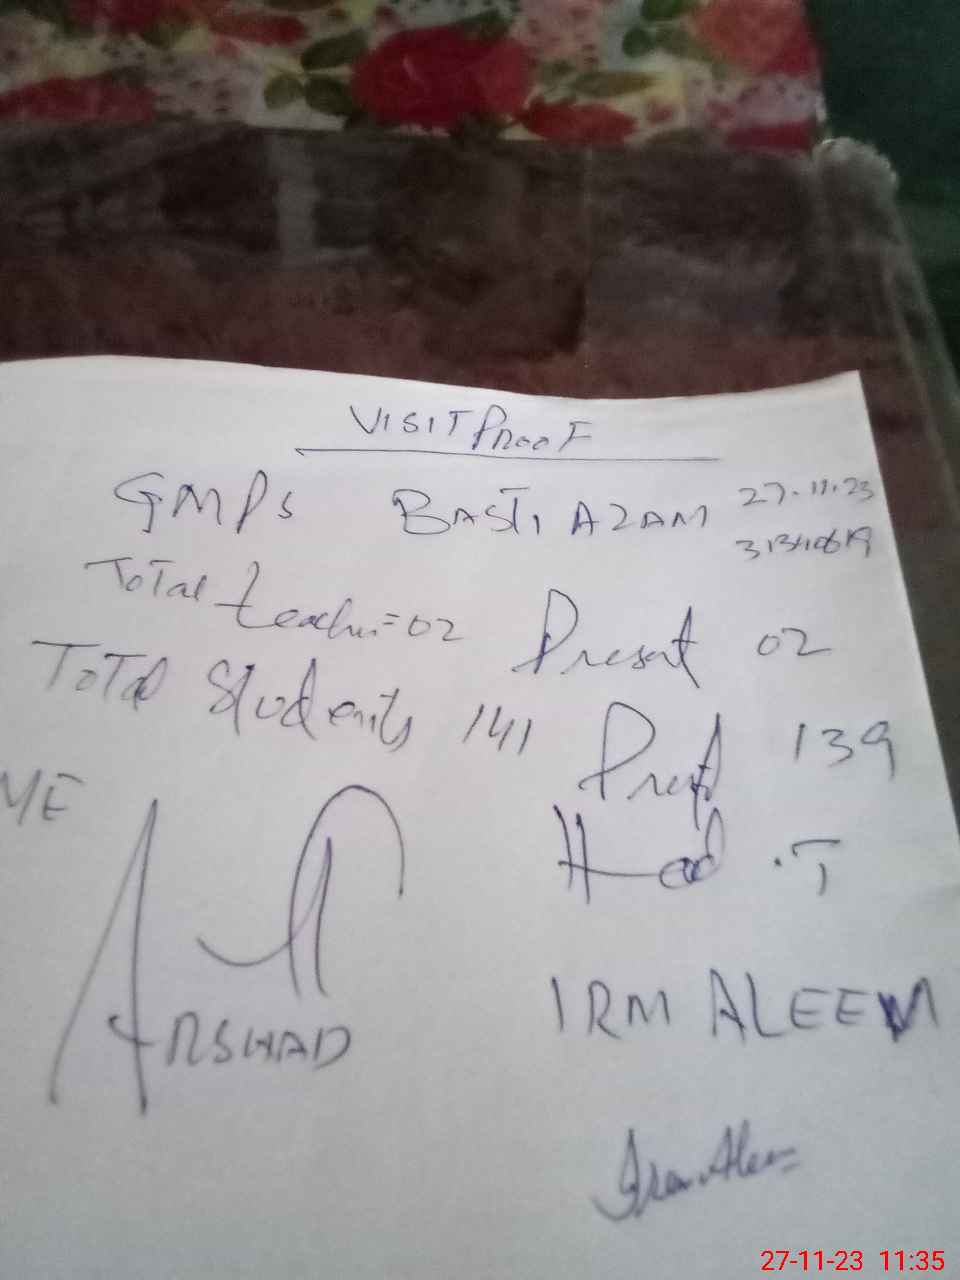 VISIT PROOF
GMPS BASTI AZAM 27-11-23
31340619
Total teacher=02 Present 02
Total Students 141 Prest 139
ME Head .T
ARSHAD IRM ALEEM
Irm Aleem
27-11-23 11:35